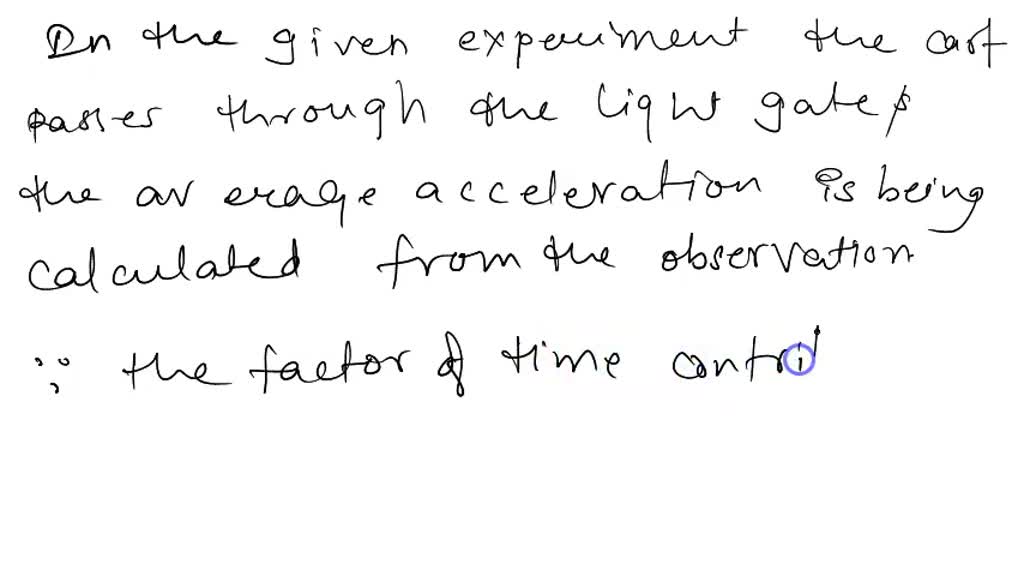 In the given experiment the cart
passes through the light gate &
the average acceleration is being
calculated from the observation
∵ the factor of time contri